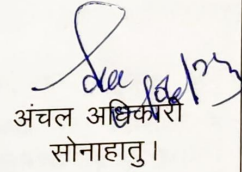 अंचल अधिकारी
सोनाहातु।